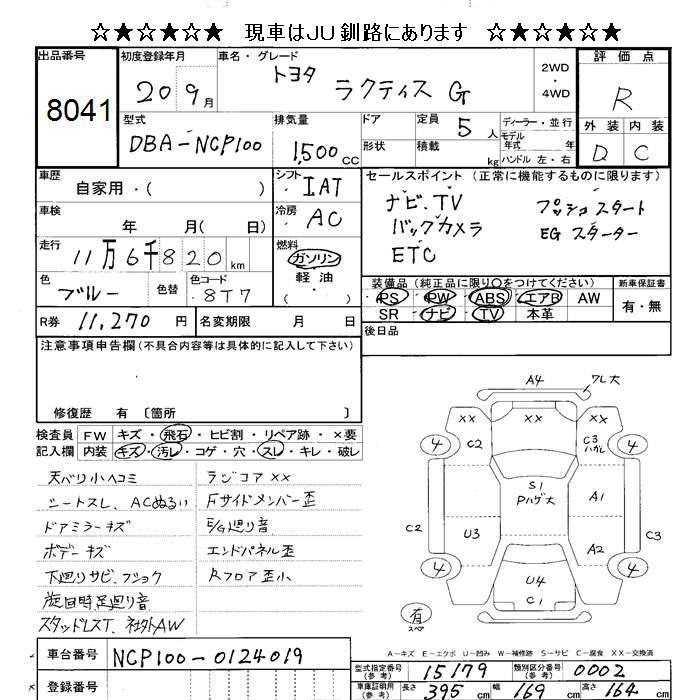 ☆★☆★☆★ 現車はJU釧路にあります ☆★☆★☆★
出品番号 8041
初度登録年月 20 9月
車名・グレード トヨタ ラクティス G
2WD・4WD
評価点 R
外装 内装
D C
型式 DBA-NCP100
排気量 1,500cc
ドア 定員 5人
形状 積載 kg
ディーラー・並行
モデル年式 年
ハンドル 左・右
車歴 自家用・( )
シフト IAT
車検 年 月( 日)
冷房 AC
走行 11万6千820km
燃料 ガソリン・軽油・( )
色 ブルー 色替
色コード 8T7
R券 11,270円
名変期限 月 日
セールスポイント (正常に機能するものに限ります)
ナビ.TV プッシュスタート
バックカメラ EGスターター
ETC
装備品(純正品に限り○をつけてください) 新車保証書
PS PW ABS エアB AW 有・無
SR ナビ TV 本革
後日品
注意事項申告欄(不具合内容等は具体的に記入して下さい)
修復歴 有 〔箇所 〕
検査員記入欄
FW キズ・飛石・ヒビ割・リペア跡・×要
内装 キズ・汚レ・コゲ・穴・スレ・キレ・破レ
天バリ小ヘコミ ラジコア××
シートスレ、ACぬるい Fサイドメンバー歪
ドアミラーキズ E/G廻り音
ボデーキズ エンドパネル歪
下廻りサビ、フショク Rフロア歪小
旋回時足廻り音
スタッドレスT、社外AW
A4 ワレ大
×× ××
4 C2 C3 ハガレ 4
S1
Pハゲ大 A1
C2 U3 A2 C3
4 U4 4
C1
有 スペア
A-キズ E-エクボ U-凹み W-補修跡 S-サビ C-腐食 XX-交換済
車台番号 NCP100-0124019
登録番号
型式指定番号(参考) 15179
類別区分番号(参考) 0002
車庫証明用(参考) 長さ 395cm 幅 169cm 高さ 164cm